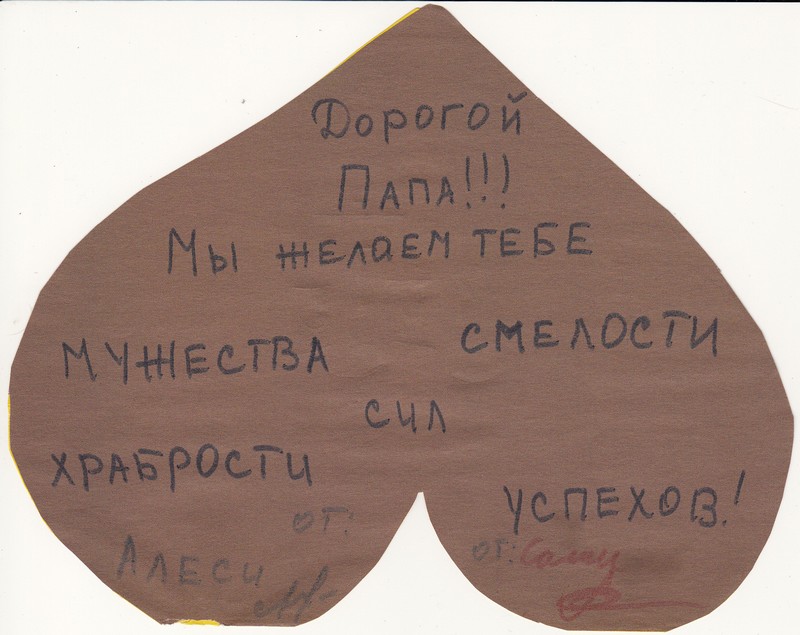 Дорогой
Папа!!!
Мы желаем тебе
мужества
смелости
сил
храбрости
успехов!
от:
Алеси
от: Саши